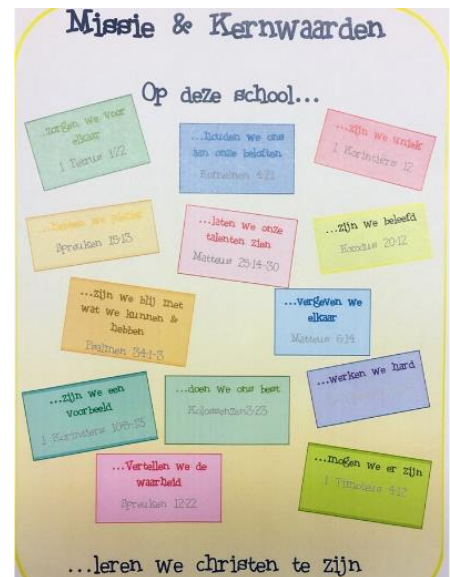 Missie & Kernwaarden
Op deze school...
...zorgen we voor
elkaar
1 Petrus 1:22
...houden we ons
aan onze beloften
Romeinen 4:21
...zijn we uniek
1 Korintiërs 12
...hebben we plezier
Spreuken 15:13
...laten we onze
talenten zien
Matteus 25:14-30
...zijn we beleefd
Exodus 20:12
...zijn we blij met
wat we kunnen &
hebben
Psalmen 34:1-3
...vergeven we
elkaar
Matteus 6:14
...zijn we een
voorbeeld
1 Korintiërs
...doen we ons best
Kolossenzen3:23
...werken we hard
...Vertellen we de
waarheid
Spreuken 12:22
...mogen we er zijn
1 Timoteüs 4:12
...leren we christen te zijn